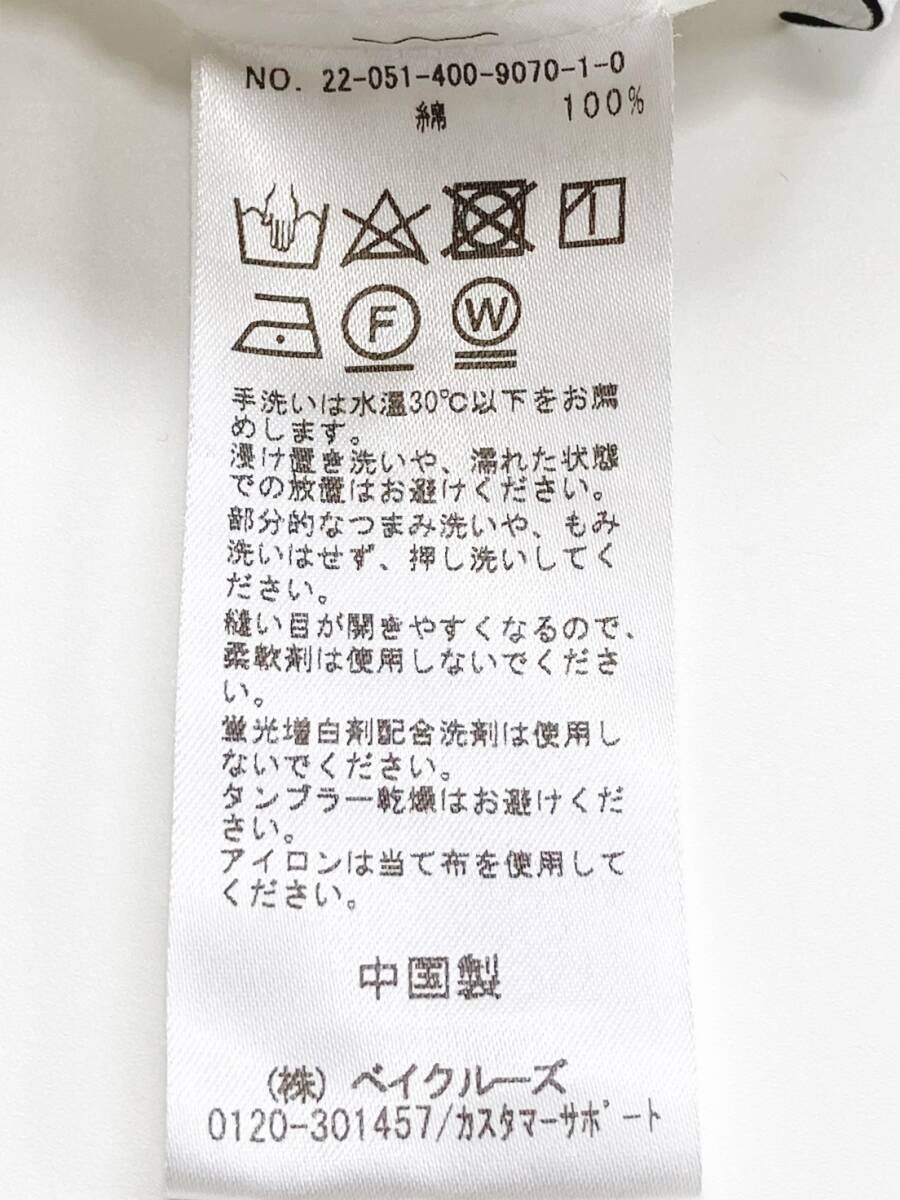 NO. 22-051-400-9070-1-0
綿 100%
F W
手洗いは水温30℃以下をお薦
めします。
浸け置き洗いや、濡れた状態
での放置はお避けください。
部分的なつまみ洗いや、もみ
洗いはせず、押し洗いしてく
ださい。
縫い目が開きやすくなるので、
柔軟剤は使用しないでくださ
い。
蛍光増白剤配合洗剤は使用し
ないでください。
タンブラー乾燥はお避けくだ
さい。
アイロンは当て布を使用して
ください。
中国製
(株) ベイクルーズ
0120-301457/カスタマーサポート